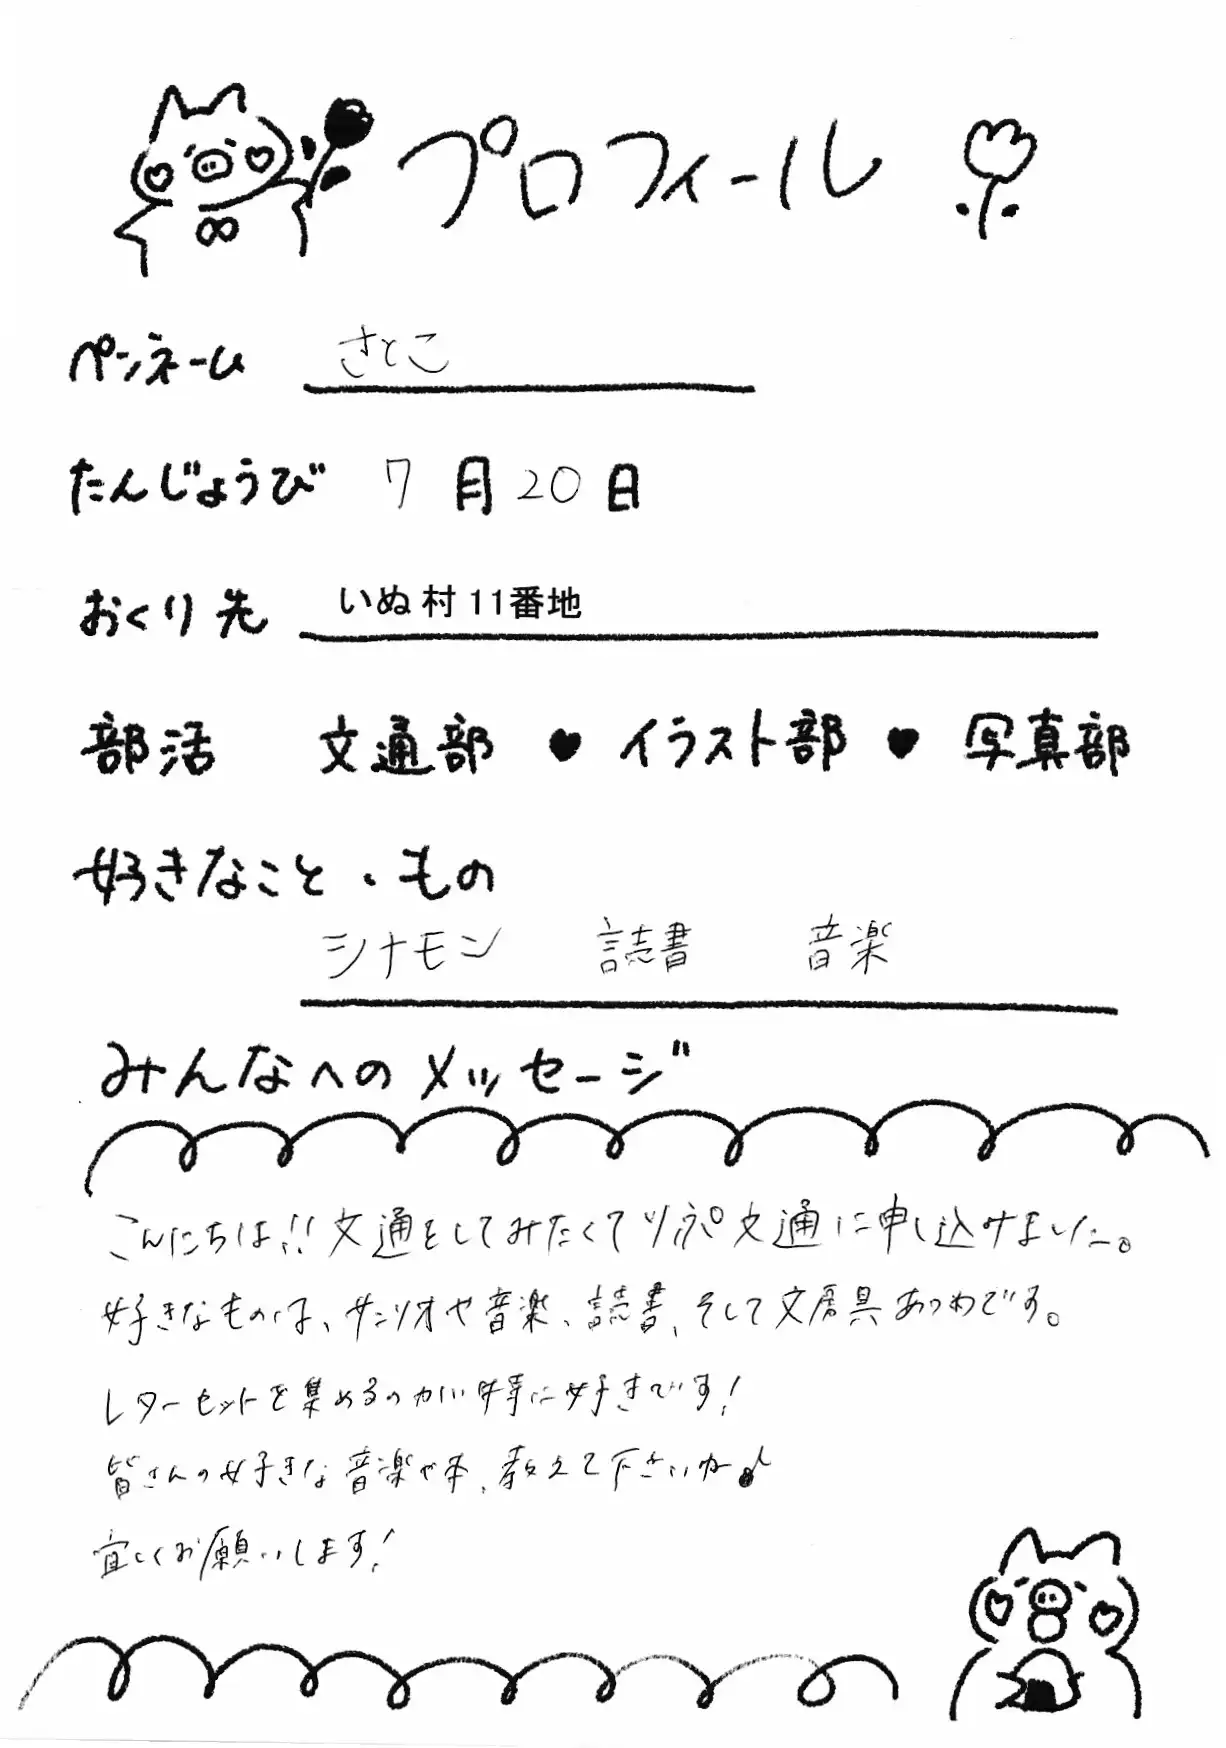 プロフィール
ペンネーム さとこ
たんじょうび 7月20日
おくり先 いぬ村11番地
部活 文通部 ♥ イラスト部 ♥ 写真部
好きなこと・もの
シナモン 読書 音楽
みんなへのメッセージ
こんにちは!!文通をしてみたくてリぷ文通に申し込みました。
好きなものは、サンリオや音楽、読書、そして文房具あつめです。
レターセットを集めるのが特に好きです!
皆さんの好きな音楽や本、教えて下さいね♪
宜しくお願いします!